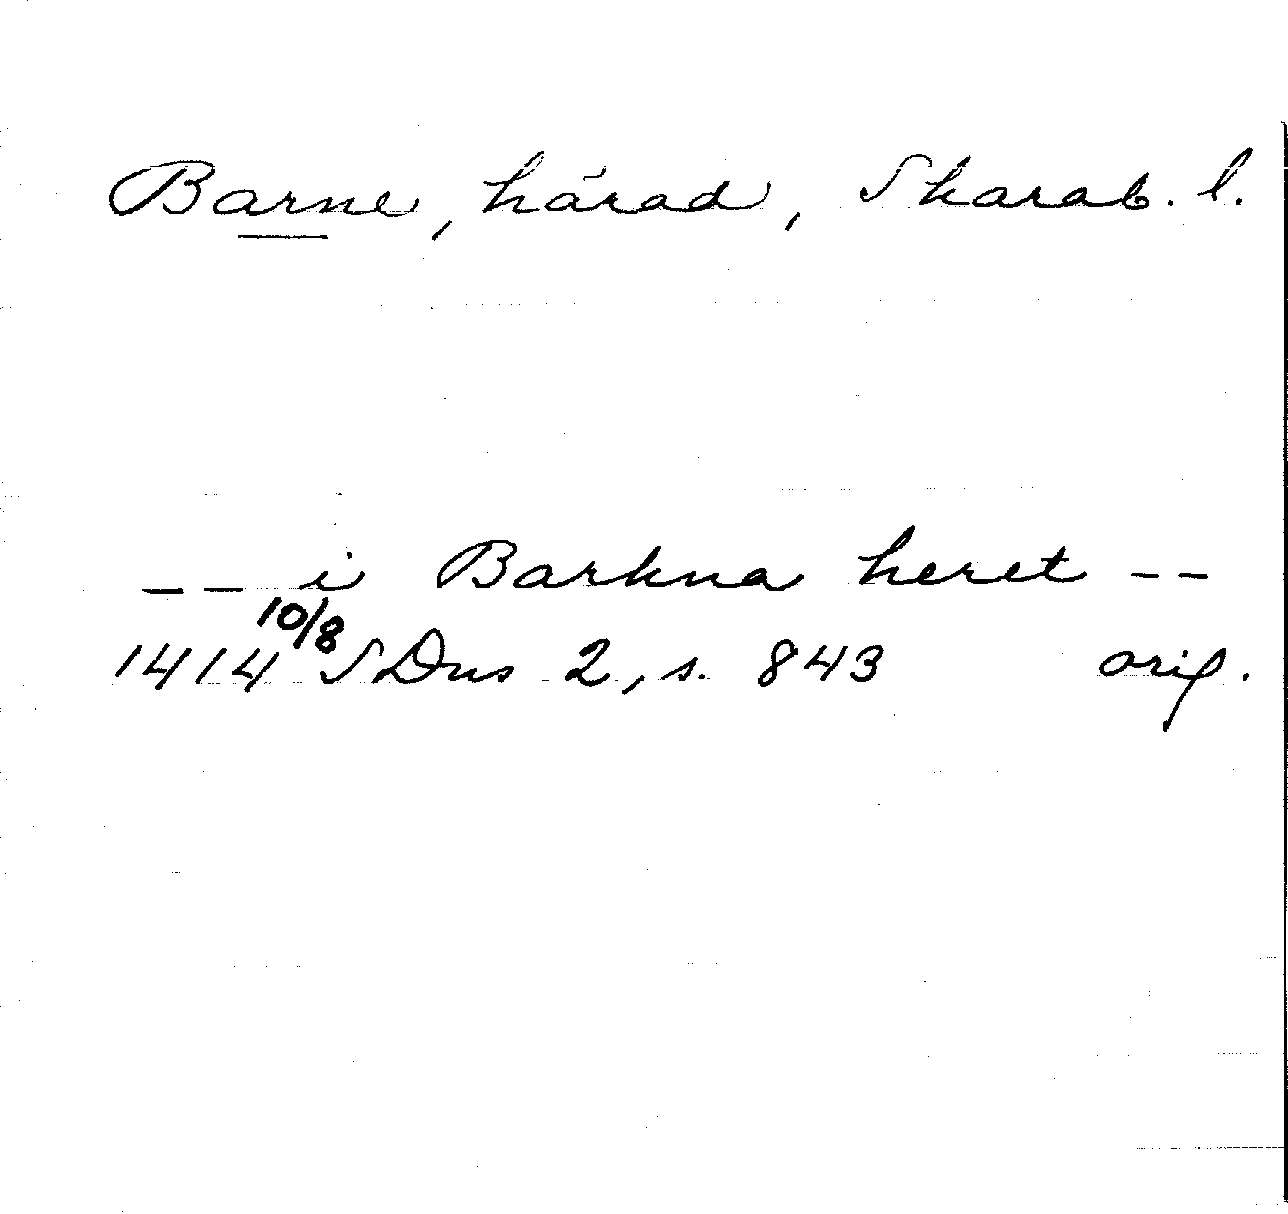 Barne, härad, Skarab. l.
-- i Barkna heret --
1414 10/8 SDns 2, s. 843 orig.